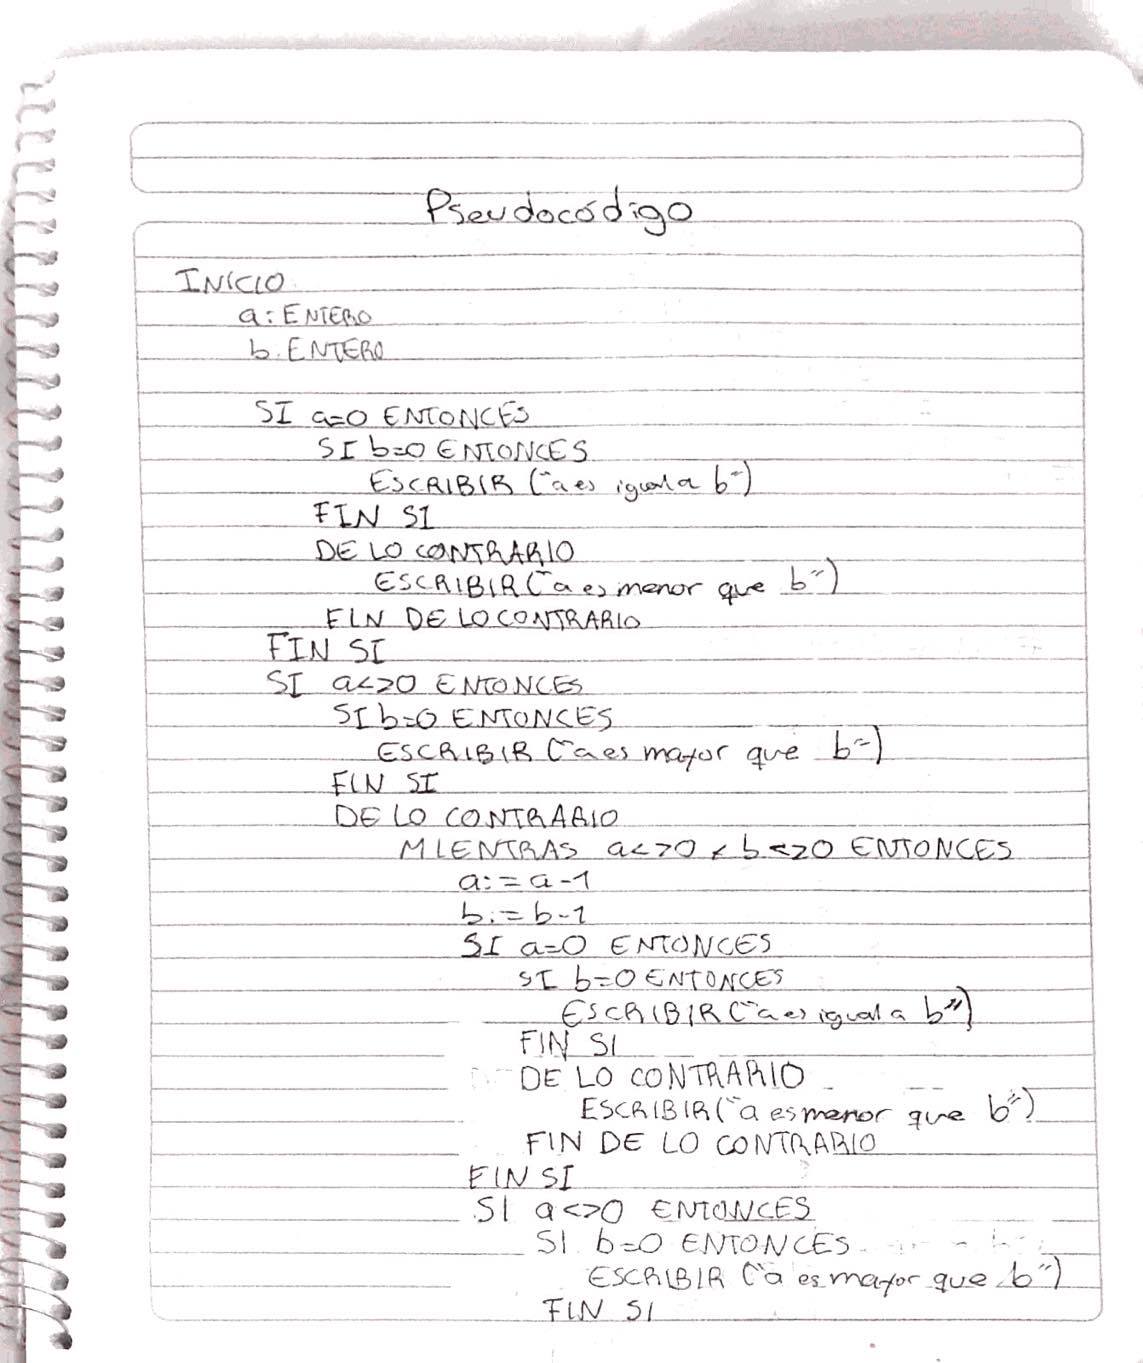 Pseudocódigo
INICIO
a: ENTERO
b. ENTERO
SI a=0 ENTONCES
SI b=0 ENTONCES
ESCRIBIR ("a es igual a b")
FIN SI
DE LO CONTRARIO
ESCRIBIR ("a es menor que b")
FIN DE LO CONTRARIO
FIN SI
SI a<>0 ENTONCES
SI b=0 ENTONCES
ESCRIBIR ("a es mayor que b")
FIN SI
DE LO CONTRARIO
MIENTRAS a<>0 y b<>0 ENTONCES
a:=a-1
b:=b-1
SI a=0 ENTONCES
SI b=0 ENTONCES
ESCRIBIR ("a es igual a b")
FIN SI
DE LO CONTRARIO
ESCRIBIR ("a es menor que b")
FIN DE LO CONTRARIO
FIN SI
SI a<>0 ENTONCES
SI b=0 ENTONCES
ESCRIBIR ("a es mayor que b")
FIN SI